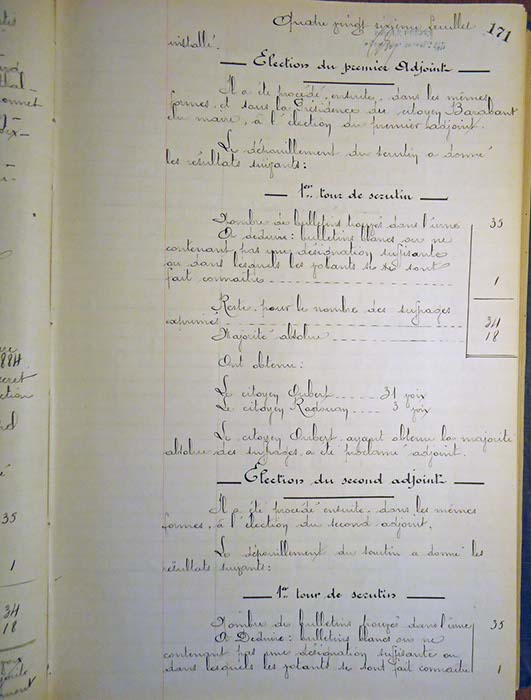 Quatre vingt sixième feuillet
171
installé.
Election du premier Adjoint
Il a été procédé, ensuite, dans les mêmes
formes, et sous la Présidence du citoyen Barabant
élu maire, à l'élection du premier adjoint.
Le dépouillement du scrutin a donné
les résultats suivants :
1er tour de scrutin
Nombre de bulletins trouvés dans l'urne 35
A déduire : bulletins blancs ou ne
contenant pas une désignation suffisante
ou dans lesquels les votants se sont
fait connaître 1
Reste, pour le nombre des suffrages
exprimés 34
Majorité absolue 18
Ont obtenu :
Le citoyen 31 voix
Le citoyen 3 voix
Le citoyen ayant obtenu la majorité
absolue des suffrages, a été proclamé adjoint.
Election du second adjoint
Il a été procédé ensuite, dans les mêmes
formes, à l'élection du second adjoint.
Le dépouillement du scrutin a donné les
résultats suivants :
1er tour de scrutin
Nombre de bulletins trouvés dans l'urne 35
A Déduire : bulletins blancs ou ne
contenant pas une désignation suffisante ou
dans lesquels les votants se sont fait connaître 1
884
35
1
34
18